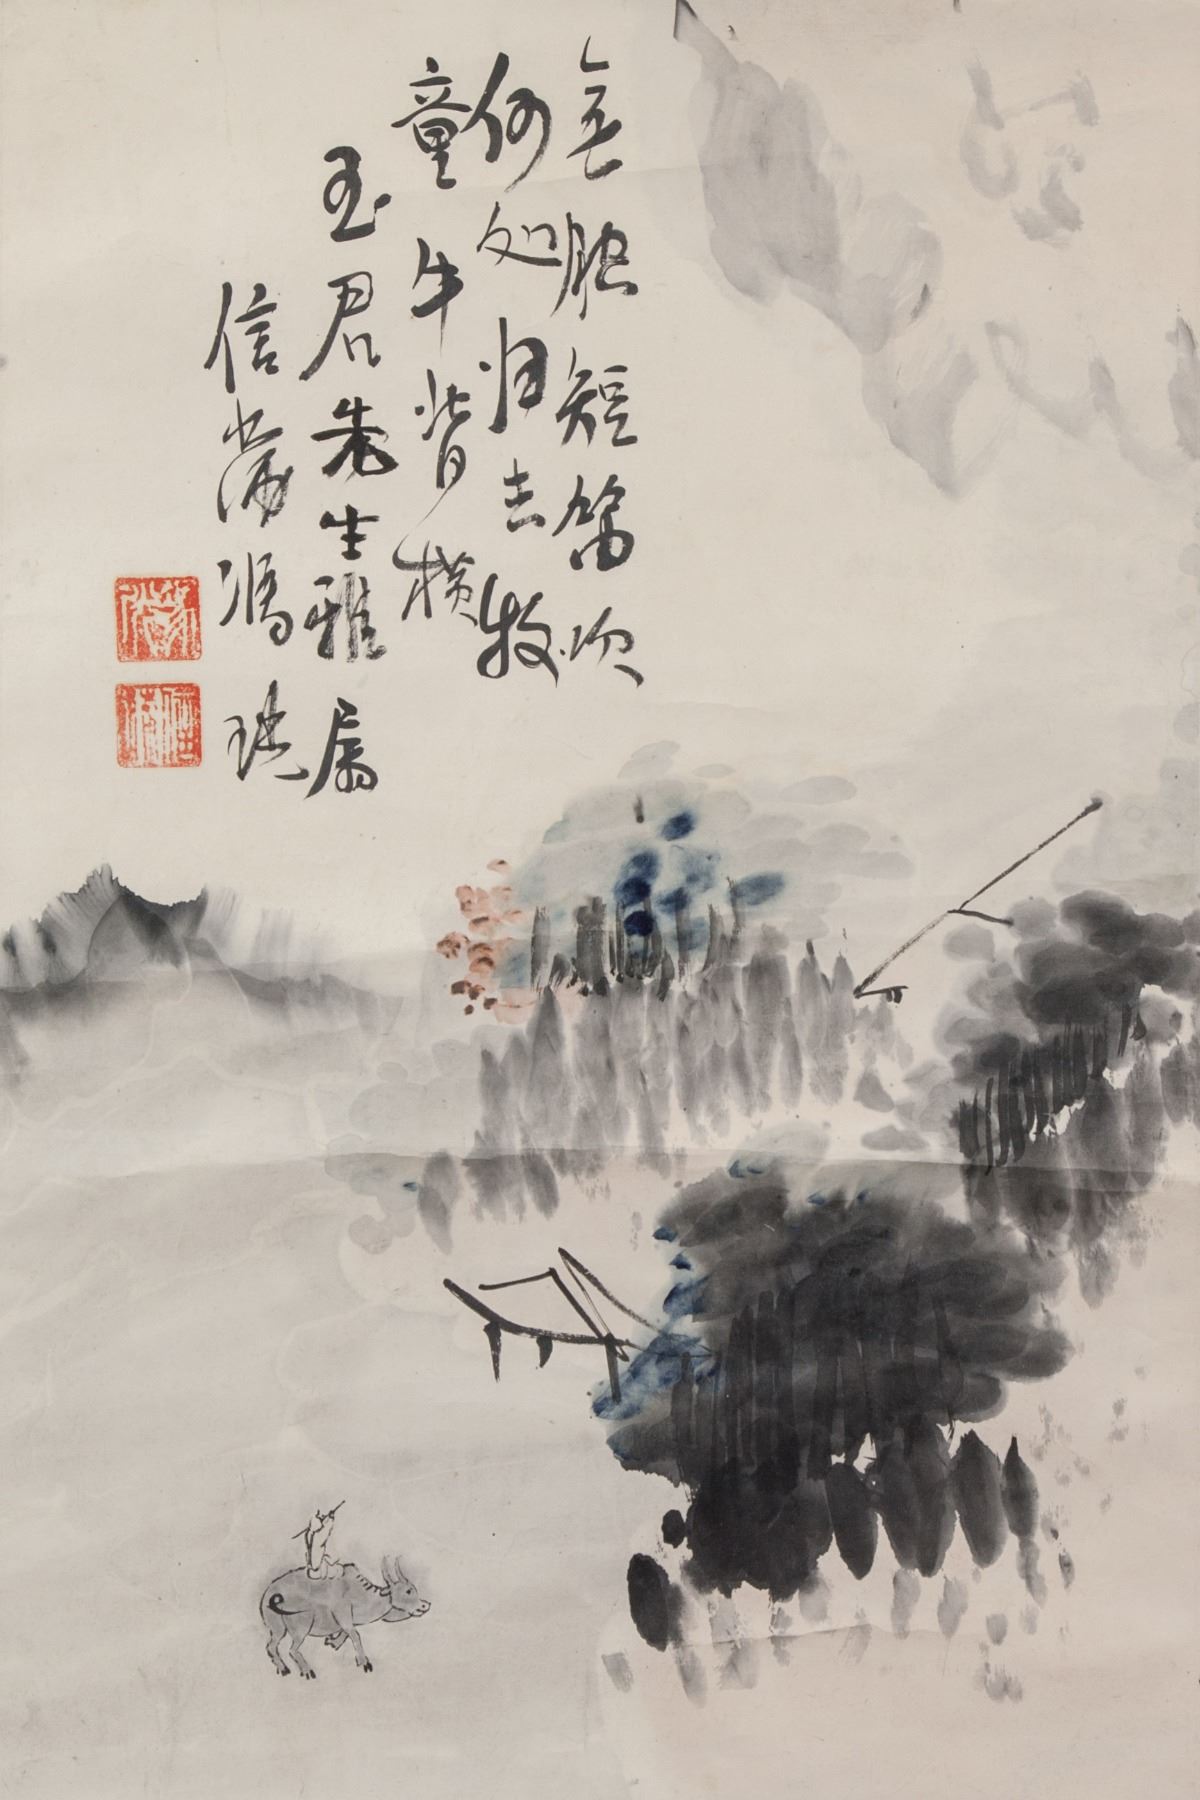 无腔短笛吹
何处归去牧
童牛背横
玉君先生雅属
信冯